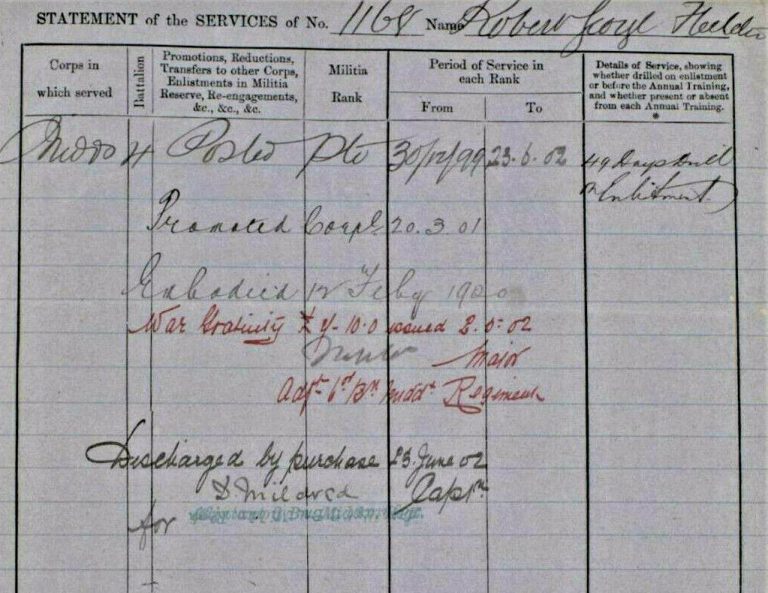 STATEMENT of the SERVICES of No. 1168 Name Robert
Corps in which served
Battalion
Promotions, Reductions, Transfers to other Corps, Enlistments in Militia Reserve, Re-engagements, &c., &c., &c.
Militia Rank
Period of Service in each Rank
From
To
Details of Service, showing whether drilled on enlistment or before the Annual Training, and whether present or absent from each Annual Training.
*
4 Posted Pte 30/12/99 23.6.02 49 Days Drill
on Enlistment
Promoted Corpl 20.3.01
Embodied 12 Feby 1900
War Gratuity issued
Major
Adjt 6th Bn Middx Regiment
Discharged by purchase 23 June 02
Mildred Captn
for